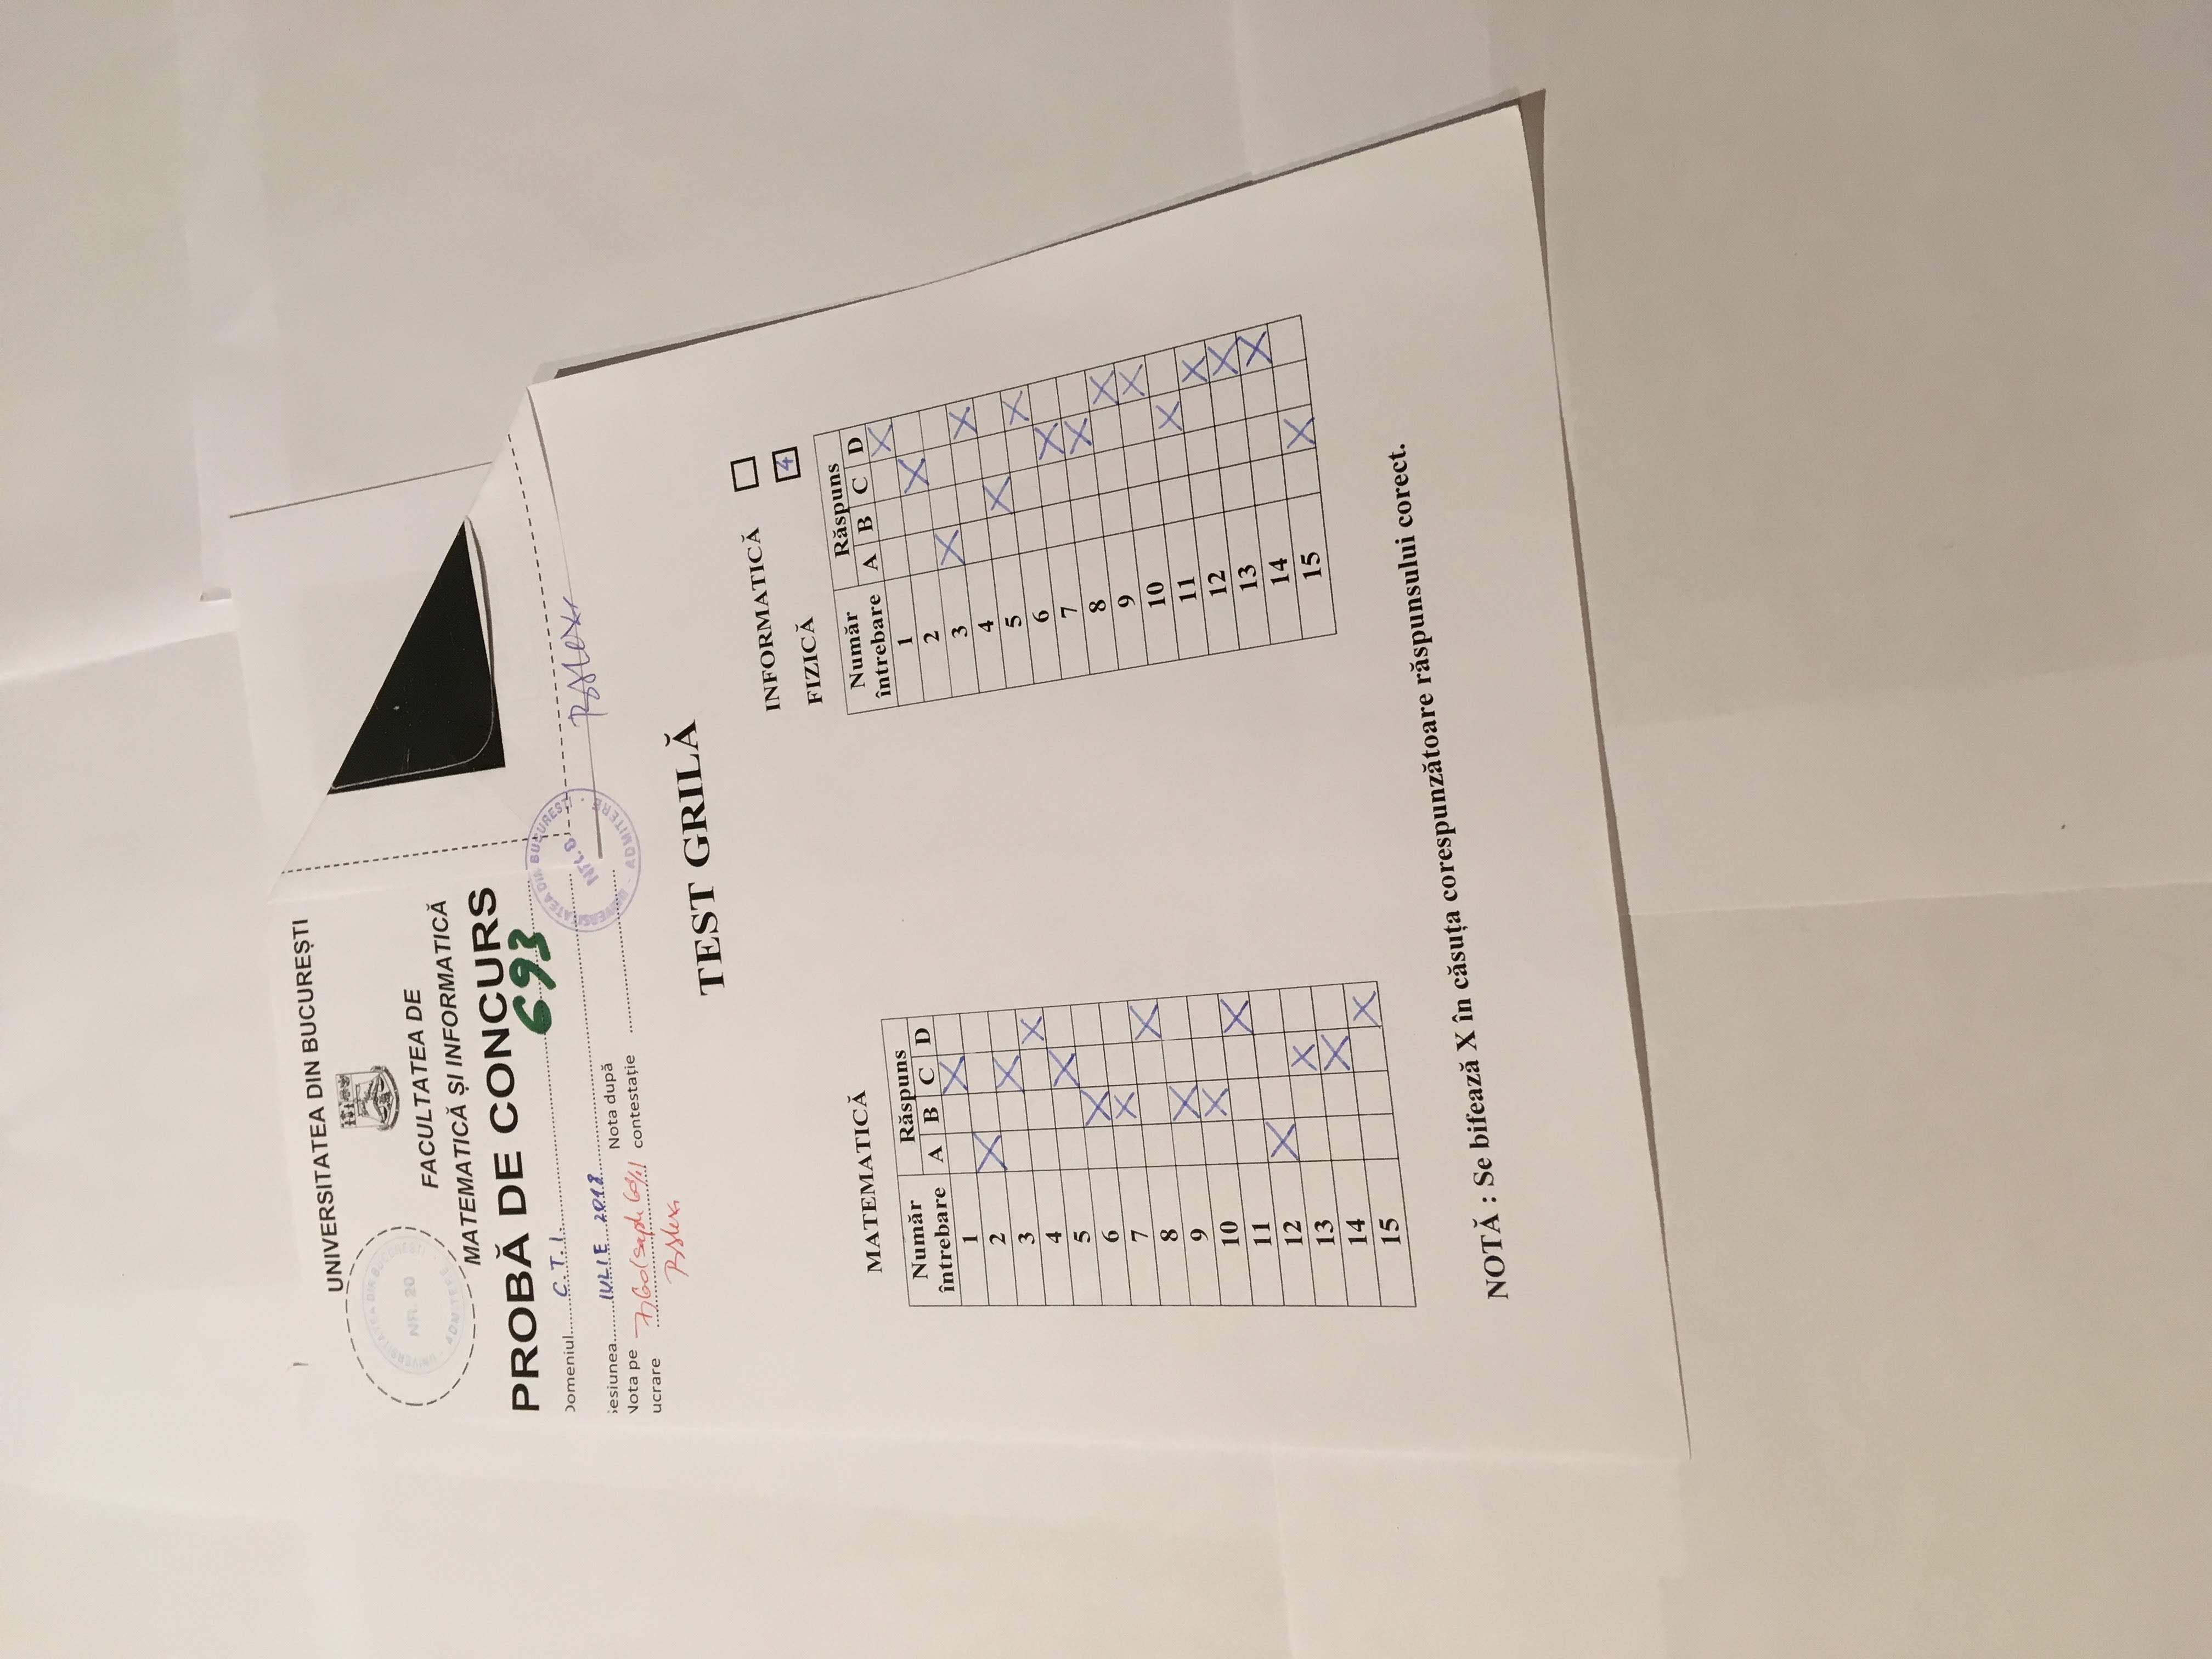 UNIVERSITATEA DIN BUCUREȘTI
UNIVERSITATEA DIN BUCUREȘTI
NR. 20
ADMITERE
FACULTATEA DE
MATEMATICĂ ȘI INFORMATICĂ
PROBĂ DE CONCURS
693
Domeniul C.T.I.
Sesiunea IULIE 2018
Nota pe lucrare 7,60
Nota după contestație
UNIVERSITATEA DIN BUCUREȘTI
NR. 8
ADMITERE
TEST GRILĂ
INFORMATICĂ
FIZICĂ 4
MATEMATICĂ
Număr întrebare Răspuns
A B C D
1 X
2 X
3 X
4 X
5 X
6 X
7 X
8 X
9 X
10 X
11 X
12 X
13 X
14 X
15 X
Număr întrebare Răspuns
A B C D
1 X
2 X
3 X
4 X
5 X
6 X
7 X
8 X
9 X
10 X
11 X
12 X
13 X
14 X
15 X
NOTĂ : Se bifează X în căsuța corespunzătoare răspunsului corect.